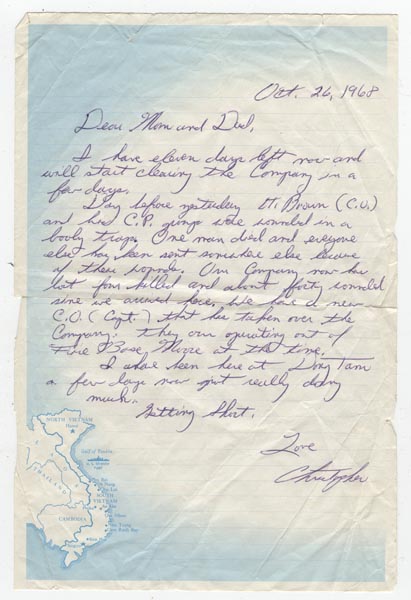 Oct. 26, 1968
Dear Mom and Dad,
I have eleven days left now and
will start clearing the Company in a
few days.
Day before yesterday Lt. Brown (C.O.)
and his C.P. group were wounded in a
booby trap. One man died and everyone
else has been sent somewhere else because
of their wounds. Our Company now has
lost four killed and about forty wounded
since we arrived here. We have a new
C.O. (Capt.) that has taken over the
Company. They are operating out of
Fire Base Moore at this time.
I have been here at Dong Tam
a few days now not really doing
much.
Getting Short.
Love
Christopher
NORTH VIETNAM
Hanoi
Gulf of Tonkin
LAOS
THAILAND
SOUTH
VIETNAM
CAMBODIA